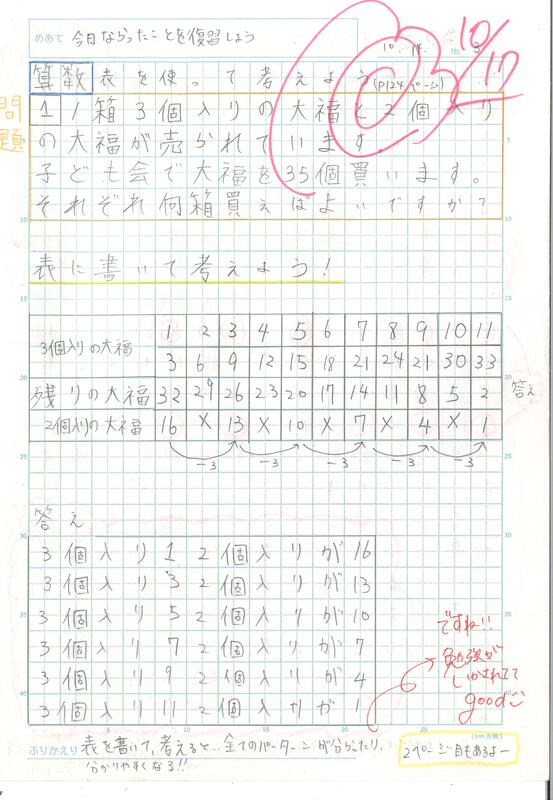 めあて 今日ならったことを復習しよう
10. 14. No. 3
10/17
算数 表を使って考えよう(P124ページ)
問題
1 1箱3個入りの大福と2個入り
の大福が売られています。
子ども会で大福を35個買います。
それぞれ何箱買えばよいですか?
表に書いて考えよう!
3個入りの大福 1 2 3 4 5 6 7 8 9 10 11
3 6 9 12 15 18 21 24 21 30 33
残りの大福 32 29 26 23 20 17 14 11 8 5 2 答え
2個入りの大福 16 × 13 × 10 × 7 × 4 × 1
-3 -3 -3 -3 -3
答え
3個入り1 2個入りが16
3個入り3 2個入りが13
3個入り5 2個入りが10
3個入り7 2個入りが7
3個入り9 2個入りが4
3個入り11 2個入りが1
ですね!!
勉強が
いかされてて
good
ふりかえり 表を書いて、考えると…全てのパターンが分かったり、
分かりやすくなる!!
2ページ目もあるよー